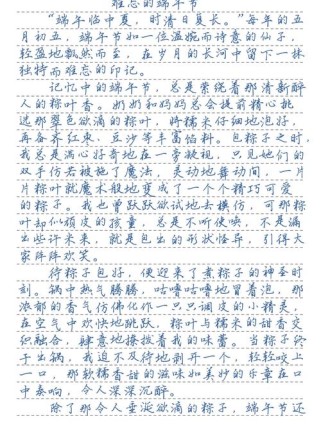 难忘的端午节
“端午临中夏，时清日复长。”每年的五
月初五，端午节如一位温婉而诗意的仙子，
轻盈地飘然而至，在岁月的长河中留下一抹
独特而难忘的印记。
记忆中的端午节，总是萦绕着那清新醉
人的粽叶香。奶奶和妈妈总会提前精心挑
选那翠色欲滴的粽叶，将糯米仔细地泡好，
再备齐红枣、豆沙等丰富馅料。包粽子之时，
我总是满心好奇地在一旁凝视，只见她们的
双手仿若被施了魔法，灵动地舞动间，一片
片粽叶就魔术般地变成了一个个精巧可爱
的粽子。我也曾跃跃欲试地去模仿，可那粽
叶却似顽皮的孩童，总是不听使唤，不是漏
出些许米来，就是包出的形状怪异，引得大
家阵阵欢笑。
待粽子包好，便迎来了煮粽子的神圣时
刻。锅中热气腾腾，咕噜咕噜地冒着泡，那
浓郁的香气仿佛化作一只只调皮的小精灵，
在空气中欢快地跳跃，粽叶与糯米的甜香交
织融合，肆意地撩拨着我的味蕾。当粽子终
于出锅，我迫不及待地剥开一个，轻轻咬上
一口，那软糯香甜的滋味如美妙的乐章在口
中奏响，令人深深沉醉。
除了那令人垂涎欲滴的粽子，端午节还